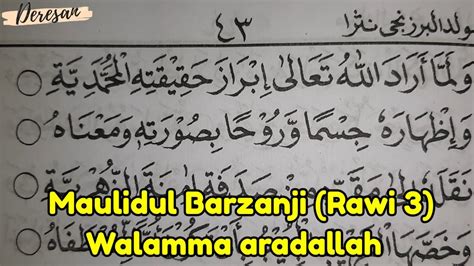 Deresan
٤٣
ولد البرزنجى نثرا
وَلَمَّا أَرَادَ اللهُ تَعَالَى إِبْرَازَ حَقِيْقَتِهِ الْمُحَمَّدِيَّةِ
وَإِظْهَارَهُ جِسْمًا وَّرُوْحًا بِصُوْرَتِهِ وَمَعْنَاهُ
نَقَلَهُ
Maulidul Barzanji (Rawi 3)
Walamma aradallah
وَخَصَّهَا